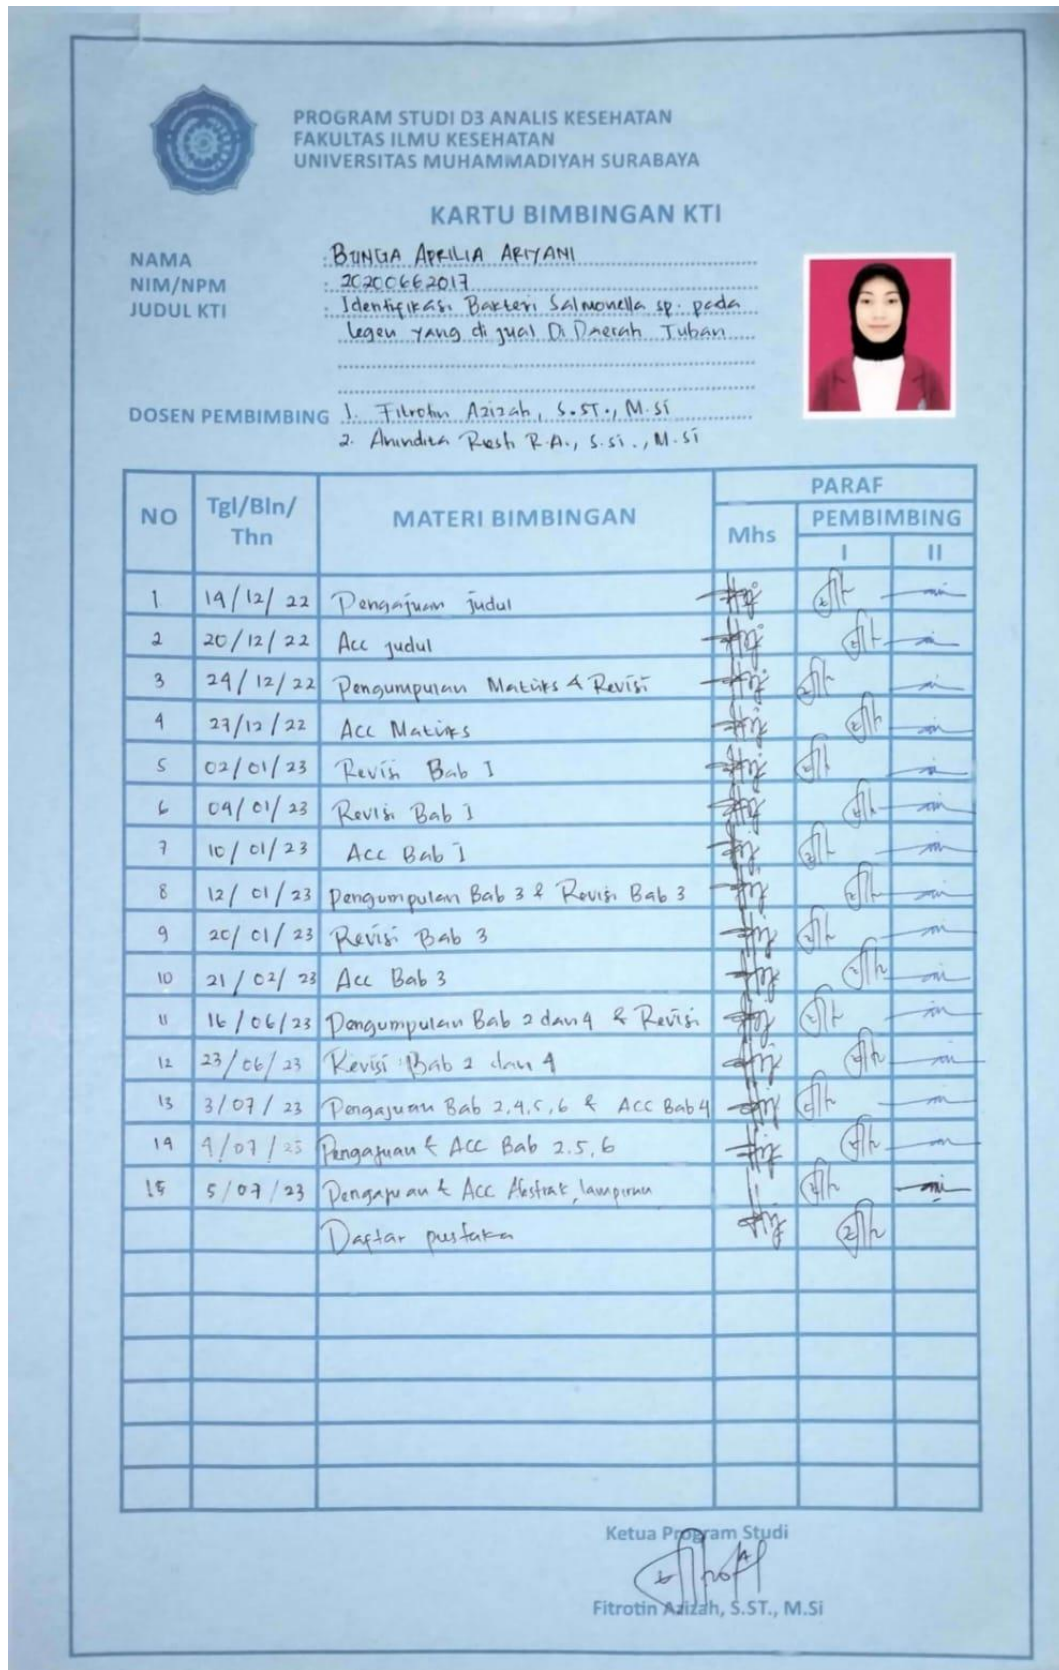 PROGRAM STUDI D3 ANALIS KESEHATAN
FAKULTAS ILMU KESEHATAN
UNIVERSITAS MUHAMMADIYAH SURABAYA
KARTU BIMBINGAN KTI
NAMA : BUNGA APRILIA ARIYANI
NIM/NPM : 20200662017
JUDUL KTI : Identifikasi Bakteri Salmonella sp. pada
legen yang di jual Di Daerah Tuban
DOSEN PEMBIMBING 1. Fitrotin Azizah, S.ST., M.Si
2. Anindita Resti R.A., S.Si., M.Si
NO Tgl/Bln/Thn MATERI BIMBINGAN PARAF
Mhs PEMBIMBING
I II
1 19/12/22 Pengajuan judul
2 20/12/22 Acc judul
3 24/12/22 Pengumpulan Matriks & Revisi
4 27/12/22 Acc Matriks
5 02/01/23 Revisi Bab I
6 04/01/23 Revisi Bab I
7 10/01/23 Acc Bab I
8 12/01/23 Pengumpulan Bab 3 & Revisi Bab 3
9 20/01/23 Revisi Bab 3
10 21/02/23 Acc Bab 3
11 16/06/23 Pengumpulan Bab 2 dan 4 & Revisi
12 23/06/23 Revisi Bab 2 dan 4
13 3/07/23 Pengajuan Bab 2,4,5,6 & ACC Bab 4
14 4/07/23 Pengajuan & ACC Bab 2.5,6
15 5/07/23 Pengajuan & Acc Abstrak, lampiran
Daftar pustaka
Ketua Program Studi
Fitrotin Azizah, S.ST., M.Si